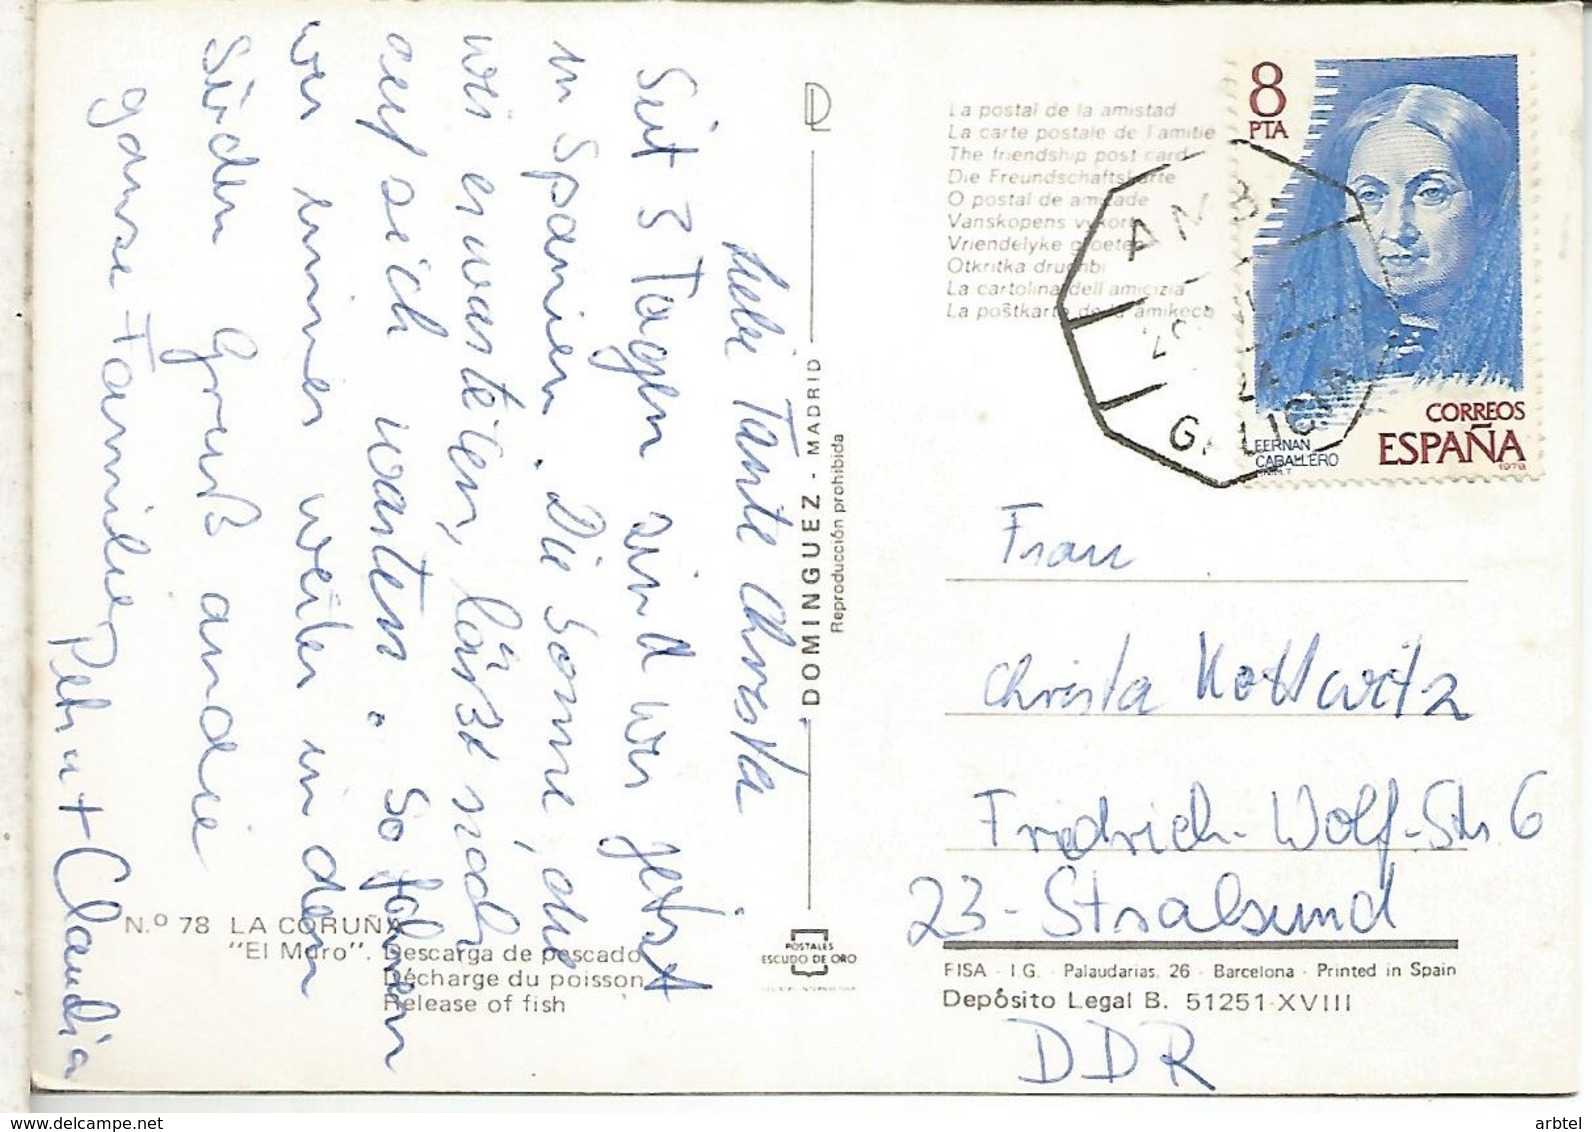 Liebe Tante Christa
Seit 3 Tagen sind wir jetzt
in Spanien. Die Sonne, die
wir erwarteten, lässt noch
auf sich warten. So fahren
wir immer weiter in den
Süden. Gruß an die
ganze Familie
Petra + Claudia
N.º 78 LA CORUÑA
"El Muro". Descarga de pescado
Décharge du poisson
Release of fish
DOMINGUEZ - MADRID
Reproducción prohibida
POSTALES
ESCUDO DE ORO
La postal de la amistad
La carte postale de l'amitié
The friendship post card
Die Freundschaftskarte
O postal de amizade
Vanskapens vykort
Vriendelyke groeten
Otkritka druchbi
La cartolina dell'amicizia
La poŝtkarto de la amikeco
8
PTA
CORREOS
ESPAÑA
1979
FERNAN
CABALLERO
F.N.M.T.
AMB.
GALICIA
Frau
Christa Kottwitz
Friedrich-Wolf-Str. 6
23-Stralsund
FISA - I.G. - Palaudarias, 26 - Barcelona - Printed in Spain
Depósito Legal B. 51251-XVIII
DDR
arbtel